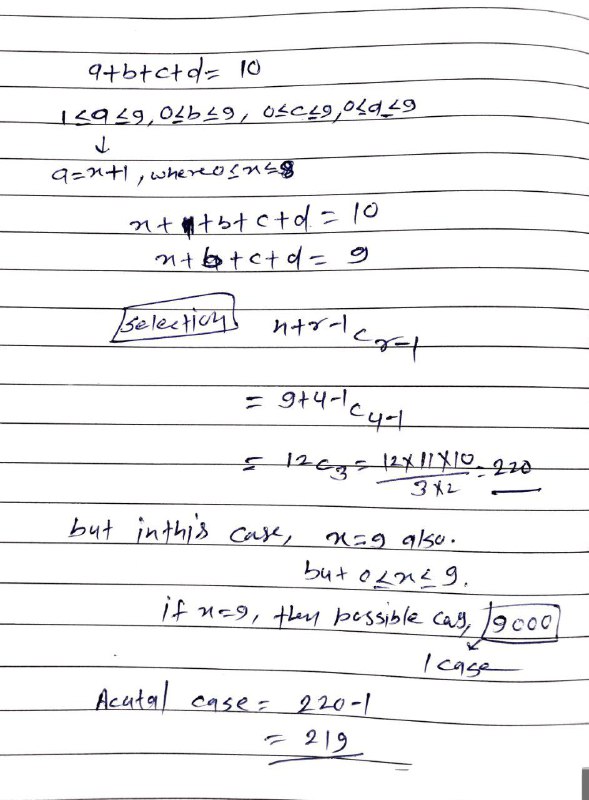 a+b+c+d= 10
1≤a≤9, 0≤b≤9, 0≤c≤9, 0≤d≤9
↓
a=x+1, where 0≤x≤8
x+1+b+c+d = 10
x+b+c+d = 9
selection n+r-1Cr-1
= 9+4-1C4-1
= 12C3 = 12×11×10/3×2 = 220
but in this case, x=9 also.
but 0≤x≤9.
if x=9, then possible cas, 9000
1 case
Acutal case = 220-1
= 219